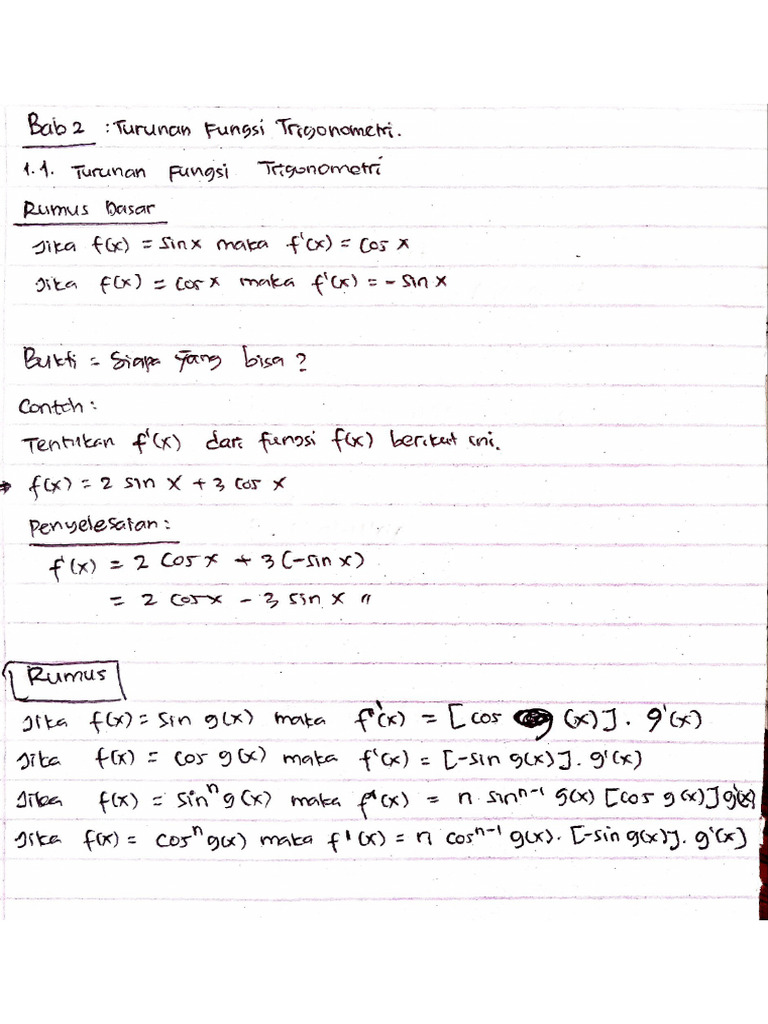 Bab 2 : Turunan Fungsi Trigonometri.
1.1. Turunan Fungsi Trigonometri
Rumus Dasar
Jika f(x) = sin x maka f'(x) = cos x
Jika f(x) = cos x maka f'(x) = - sin x
Bukti = Siapa yang bisa ?
Contoh :
Tentukan f'(x) dari fungsi f(x) berikut ini.
⇒ f(x) = 2 sin x + 3 cos x
Penyelesaian :
f'(x) = 2 cos x + 3 (-sin x)
= 2 cos x - 3 sin x //
Rumus
Jika f(x) = sin g(x) maka f'(x) = [cos g (x)] . g'(x)
Jika f(x) = cos g(x) maka f'(x) = [-sin g(x)] . g'(x)
Jika f(x) = sinⁿ g(x) maka f'(x) = n sinⁿ⁻¹ g(x) [cos g(x)] g'(x)
Jika f(x) = cosⁿ g(x) maka f'(x) = n cosⁿ⁻¹ g(x) . [-sin g(x)] . g'(x]